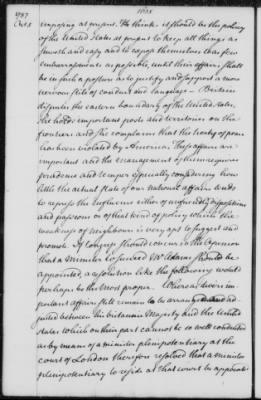 1788
1787
Oct. 8
imposing as prudent. He thinks it should be the policy
of the United States at present to keep all things as
smooth and easy and to expose themselves to as few
embarrassments as possible, until their affairs shall
be in such a posture as to justify and support a more
nervous stile of conduct and language – Britain
disputes the eastern boundary of the United States.
She holds important posts and territories on the
frontiers and she complains that the treaty of peace
has been violated by America. These affairs are
important and the management of them requires
prudence and temper especially considering how
little the actual state of our national affairs tends
to repress the influence either of unfriendly dispositions
and passions or of that kind of policy which the
weakness of neighbours is very apt to suggest and
promote. If Congress should concur in the Opinion
that a minister to succeed Mr Adams should be
appointed, a resolution like the following would
perhaps be the most proper. Whereas divers im-
portant affairs still remain to be arranged and ad-
justed between his britannic Majesty and the United
states which on their part cannot be so well conducted
as by means of a minister plenipotentiary at the
court of London therefore resolved that a minister
plenipotentiary to reside at that court be appointed